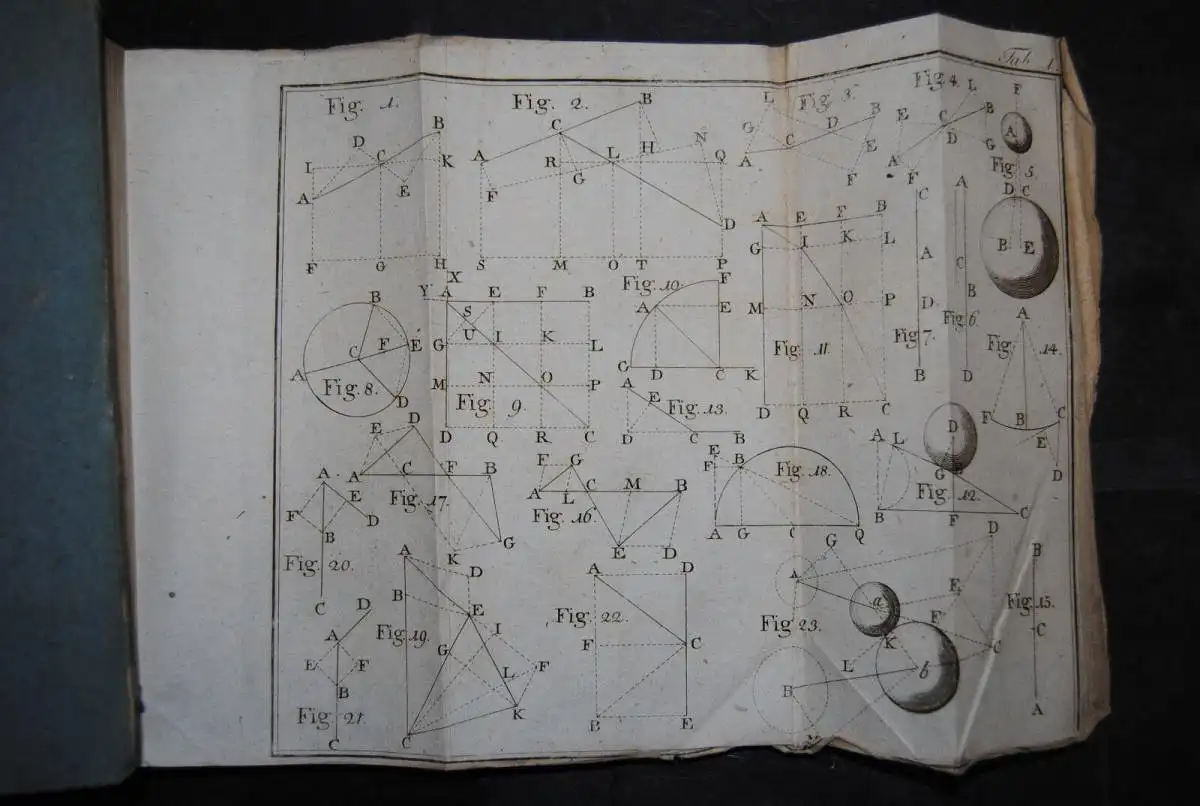 Tab. 1.
Fig. 1.
D B
I C K
A E
F G H
Fig. 2.
B
C N
A R L H Q
F G
D
S M O T P
Fig 3.
L B
G C D
A E
F
Fig 4.
L
E C B
D G
A F
F
A
Fig 5.
D C
B E
Fig 6.
A
C
B
D
Fig 7.
C
A
D
B
Fig. 8.
B
C F E
A
D
Fig. 9.
X
Y A E F B
S
U
G I K L
M N O P
D Q R C
Fig. 10.
F
A E
G D C K
Fig. 11.
A E F B
G I K L
M N O P
D Q R C
Fig. 14.
A
F B C
E
D
Fig. 13.
A
E
D C B
Fig. 17.
E D
A C F B
K G
Fig. 16.
F G
A L C M B
E D
Fig. 18.
E
F B
A G C Q
Fig. 12.
D
A L
G B
B F C
Fig. 20.
A
E
F D
B
C
Fig. 19.
A
D
B E
I
G L F
K
C
Fig. 22.
A D
F C
B E
Fig. 23.
G D
A a E
F
K C
L
B b
Fig. 15.
B
C
A
Fig. 21.
D
A
E F
B
C